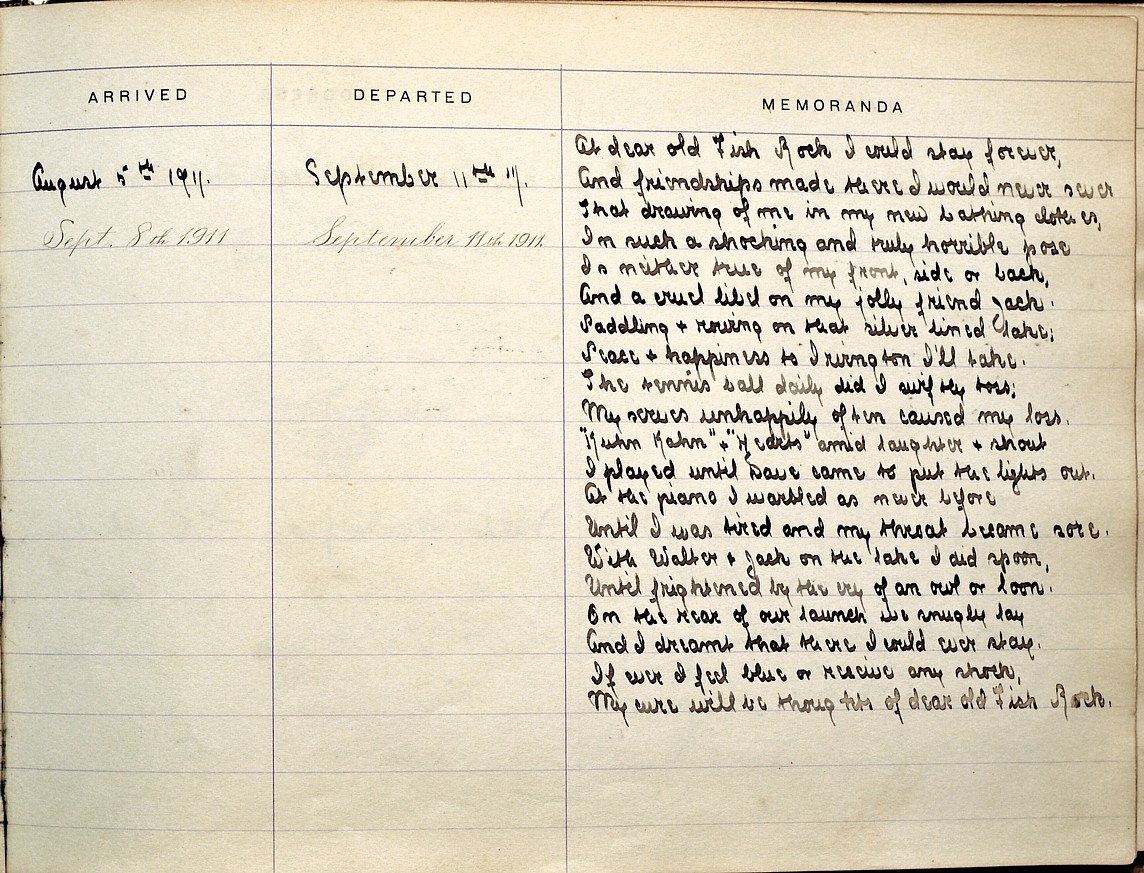 ARRIVED DEPARTED MEMORANDA
August 5th 1911. September 11th 11.
Sept. 8th 1911 September 11th 1911.
At dear old Fish Rock I could stay forever,
And friendships made there I would never sever
That drawing of me in my new bathing clothes,
In such a shocking and truly horrible pose
Is neither true of my front, side or back,
And a cruel libel on my jolly friend Jack.
Paddling + rowing on that silver lined lake;
Peace + happiness to Irvington I'll take.
The tennis ball daily did I swiftly toss;
My serves unhappily often caused my loss.
"Kuhn Kahn" + "Hearts" amid laughter + shout
I played until Dave came to put the lights out.
At the piano I warbled as never before
Until I was tired and my throat became sore.
With Walter + Jack on the lake I did spoon,
Until frightened by the cry of an owl or loon.
On the rear of our launch we snugly lay
And I dreamt that there I could ever stay.
If ever I feel blue or receive any shock,
My cure will be thoughts of dear old Fish Rock.